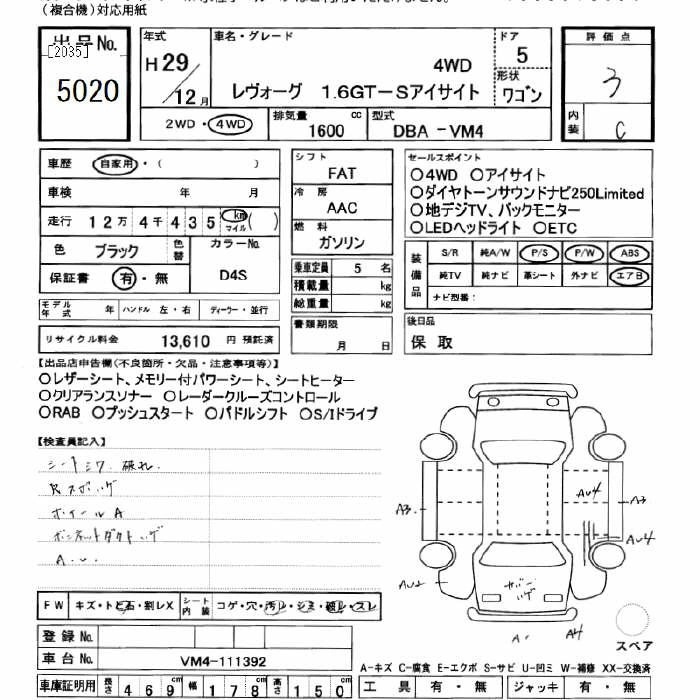 (複合機)対応用紙
出品No.
[2035]
5020
年式
H29/12月
車名・グレード
4WD
レヴォーグ 1.6GT-Sアイサイト
ドア
5
形状
ワゴン
評価点
3
内装
C
2WD・4WD
排気量
1600 cc
型式
DBA-VM4
車歴 自家用・( )
車検 年 月
走行 12万4千435 km マイル ( )
色 ブラック 色替
カラーNo.
D4S
保証書 有・無
モデル年式 年 ハンドル 左・右 ディーラー・並行
リサイクル料金 13,610 円 預託済
シフト
FAT
冷房
AAC
燃料
ガソリン
乗車定員 5 名
積載量 kg
総重量 kg
書類期限
月 日
セールスポイント
○4WD ○アイサイト
○ダイヤトーンサウンドナビ250Limited
○地デジTV、バックモニター
○LEDヘッドライト ○ETC
装備品
S/R 純A/W P/S P/W ABS
純TV 純ナビ 革シート 外ナビ エアB
ナビ型番:
後日品
保 取
【出品店申告欄(不良箇所・欠品・注意事項等)】
○レザーシート、メモリー付パワーシート、シートヒーター
○クリアランスソナー ○レーダークルーズコントロール
○RAB ○プッシュスタート ○パドルシフト ○S/Iドライブ
【検査員記入】
シートシワ 破れ.
ホイールA
ボンネットダクト
A.U.
FW キズ・トビ石・割レX
シート内装 コゲ・穴・汚レ・シミ・破レ・スレ
登録No.
車台No. VM4-111392
車庫証明用 長さ 469cm 幅 178cm 高さ 150cm
AU4
A3
A3
AU4
AU2
A.
A4
スペア
A-キズ C-腐食 E-エクボ S-サビ U-凹ミ W-補修 XX-交換済
工具 有・無 ジャッキ 有・無